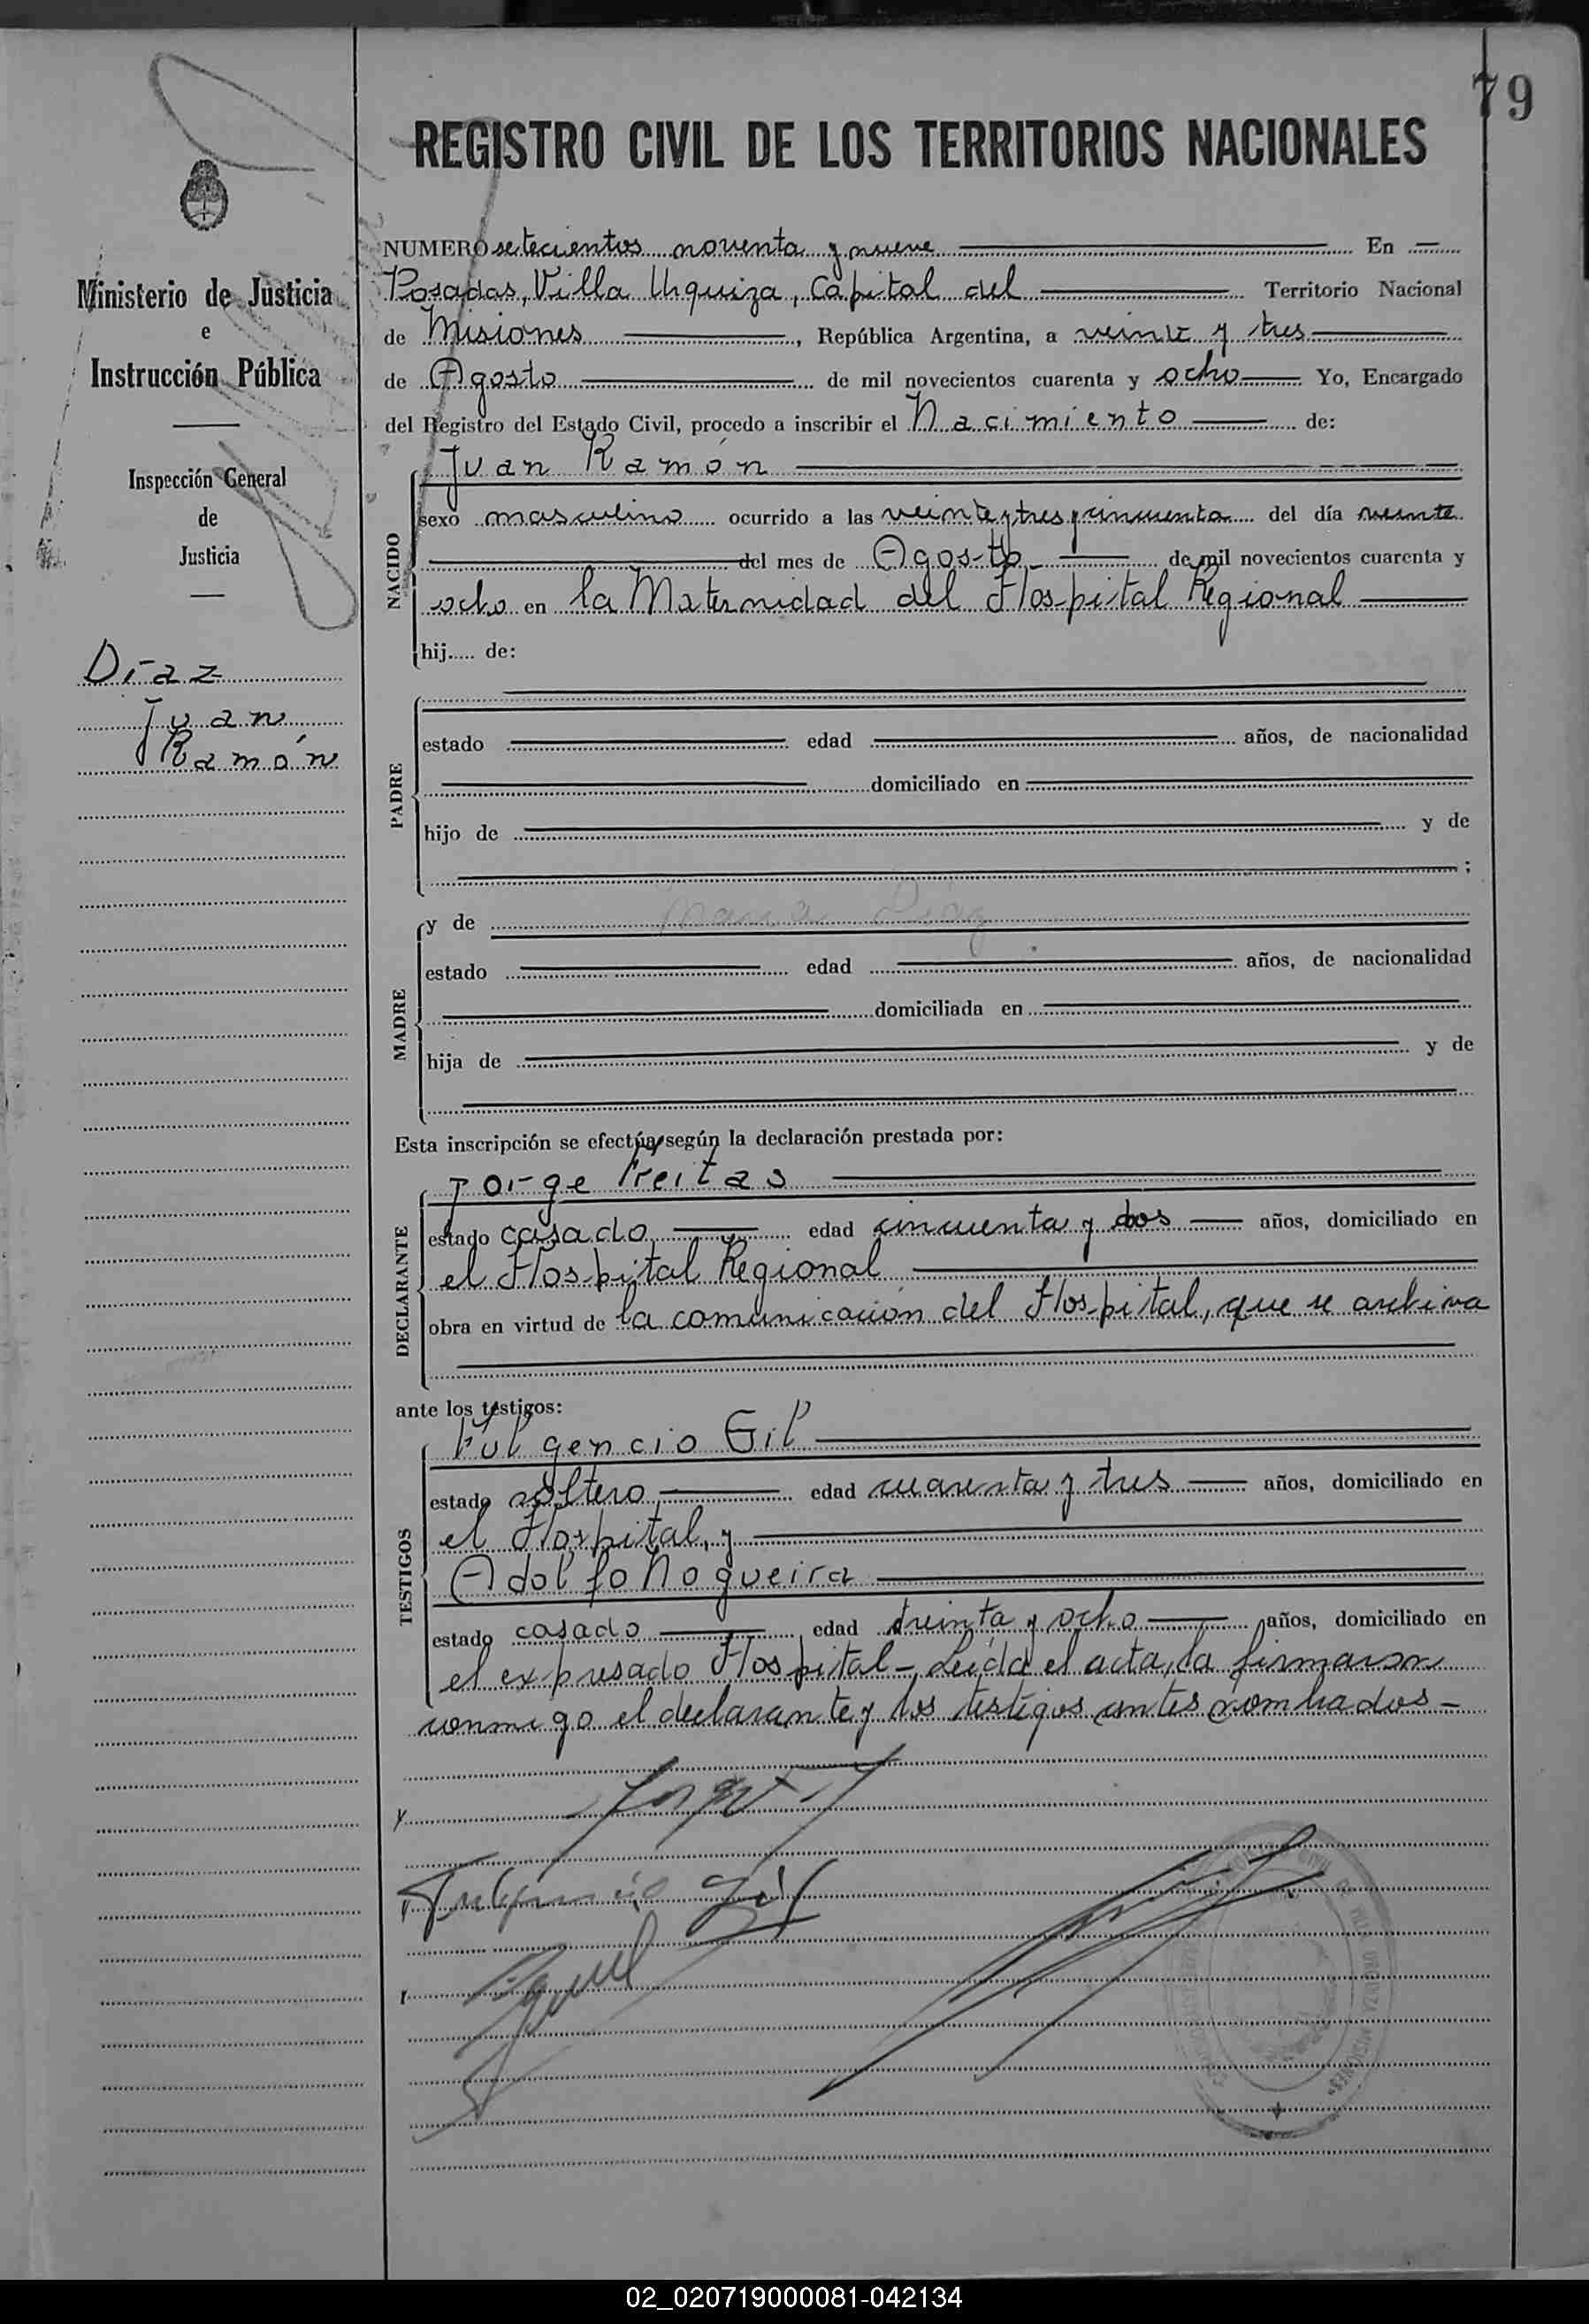 79
REGISTRO CIVIL DE LOS TERRITORIOS NACIONALES
Ministerio de Justicia
e
Instrucción Pública
Inspección General
de
Justicia
Díaz
Juan
Ramón
NUMERO setecientos noventa y nueve En
Posadas, Villa Urquiza, Capital del Territorio Nacional
de Misiones, República Argentina, a veinte y tres
de Agosto de mil novecientos cuarenta y ocho Yo, Encargado
del Registro del Estado Civil, procedo a inscribir el Nacimiento de:
NACIDO
Juan Ramón
sexo masculino ocurrido a las veinte y tres y cincuenta del día veinte
del mes de Agosto de mil novecientos cuarenta y
ocho en la Maternidad del Hospital Regional
hij..... de:
PADRE
estado edad años, de nacionalidad
domiciliado en
hijo de y de
;
MADRE
y de María Díaz
estado edad años, de nacionalidad
domiciliada en
hija de y de
Esta inscripción se efectúa según la declaración prestada por:
DECLARANTE
Jorge Freitas
estado casado edad cincuenta y dos años, domiciliado en
el Hospital Regional
obra en virtud de la comunicación del Hospital, que se archiva
ante los testigos:
TESTIGOS
Fulgencio Gil
estado soltero edad cuarenta y tres años, domiciliado en
el Hospital, y
Adolfo Nogueira
estado casado edad treinta y ocho años, domiciliado en
el expresado Hospital - Leída el acta, la firmaron
conmigo el declarante y los testigos antes nombrados -
Fulgencio Gil
02_020719000081-042134